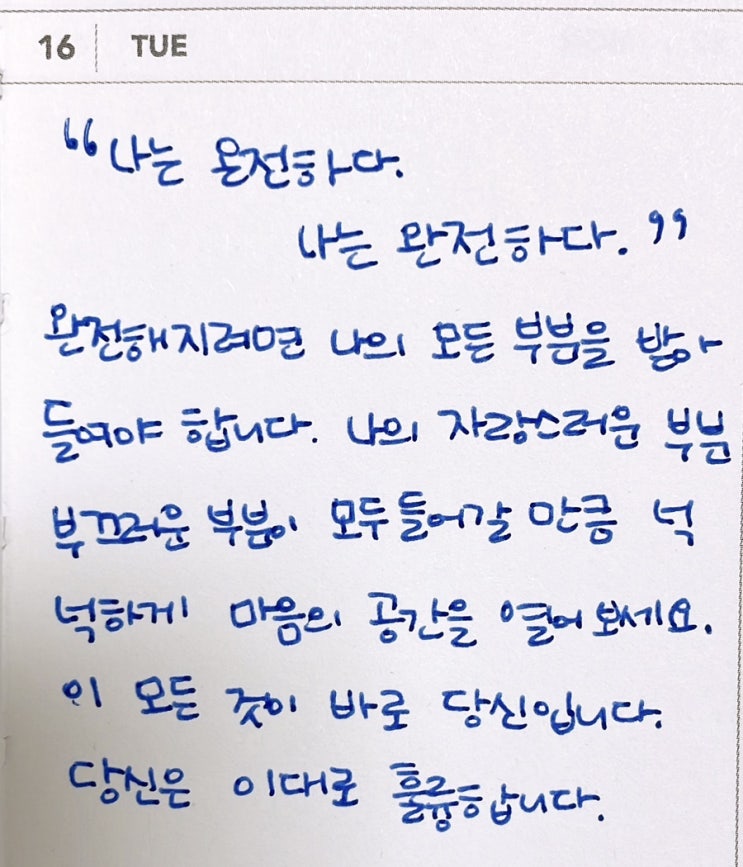 16 TUE
“나는 온전하다.
나는 완전하다.”
완전해지려면 나의 모든 부분을 받아
들여야 합니다. 나의 자랑스러운 부분
부끄러운 부분이 모두 들어갈 만큼 넉
넉하게 마음의 공간을 열어 보세요.
이 모든 것이 바로 당신입니다.
당신은 이대로 훌륭합니다.